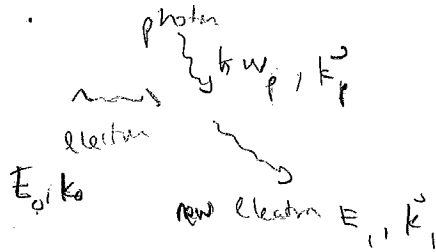 photon
ħ ω_p , k⃗_p
electron
E_0, k_0
new electron E_1, k⃗_1